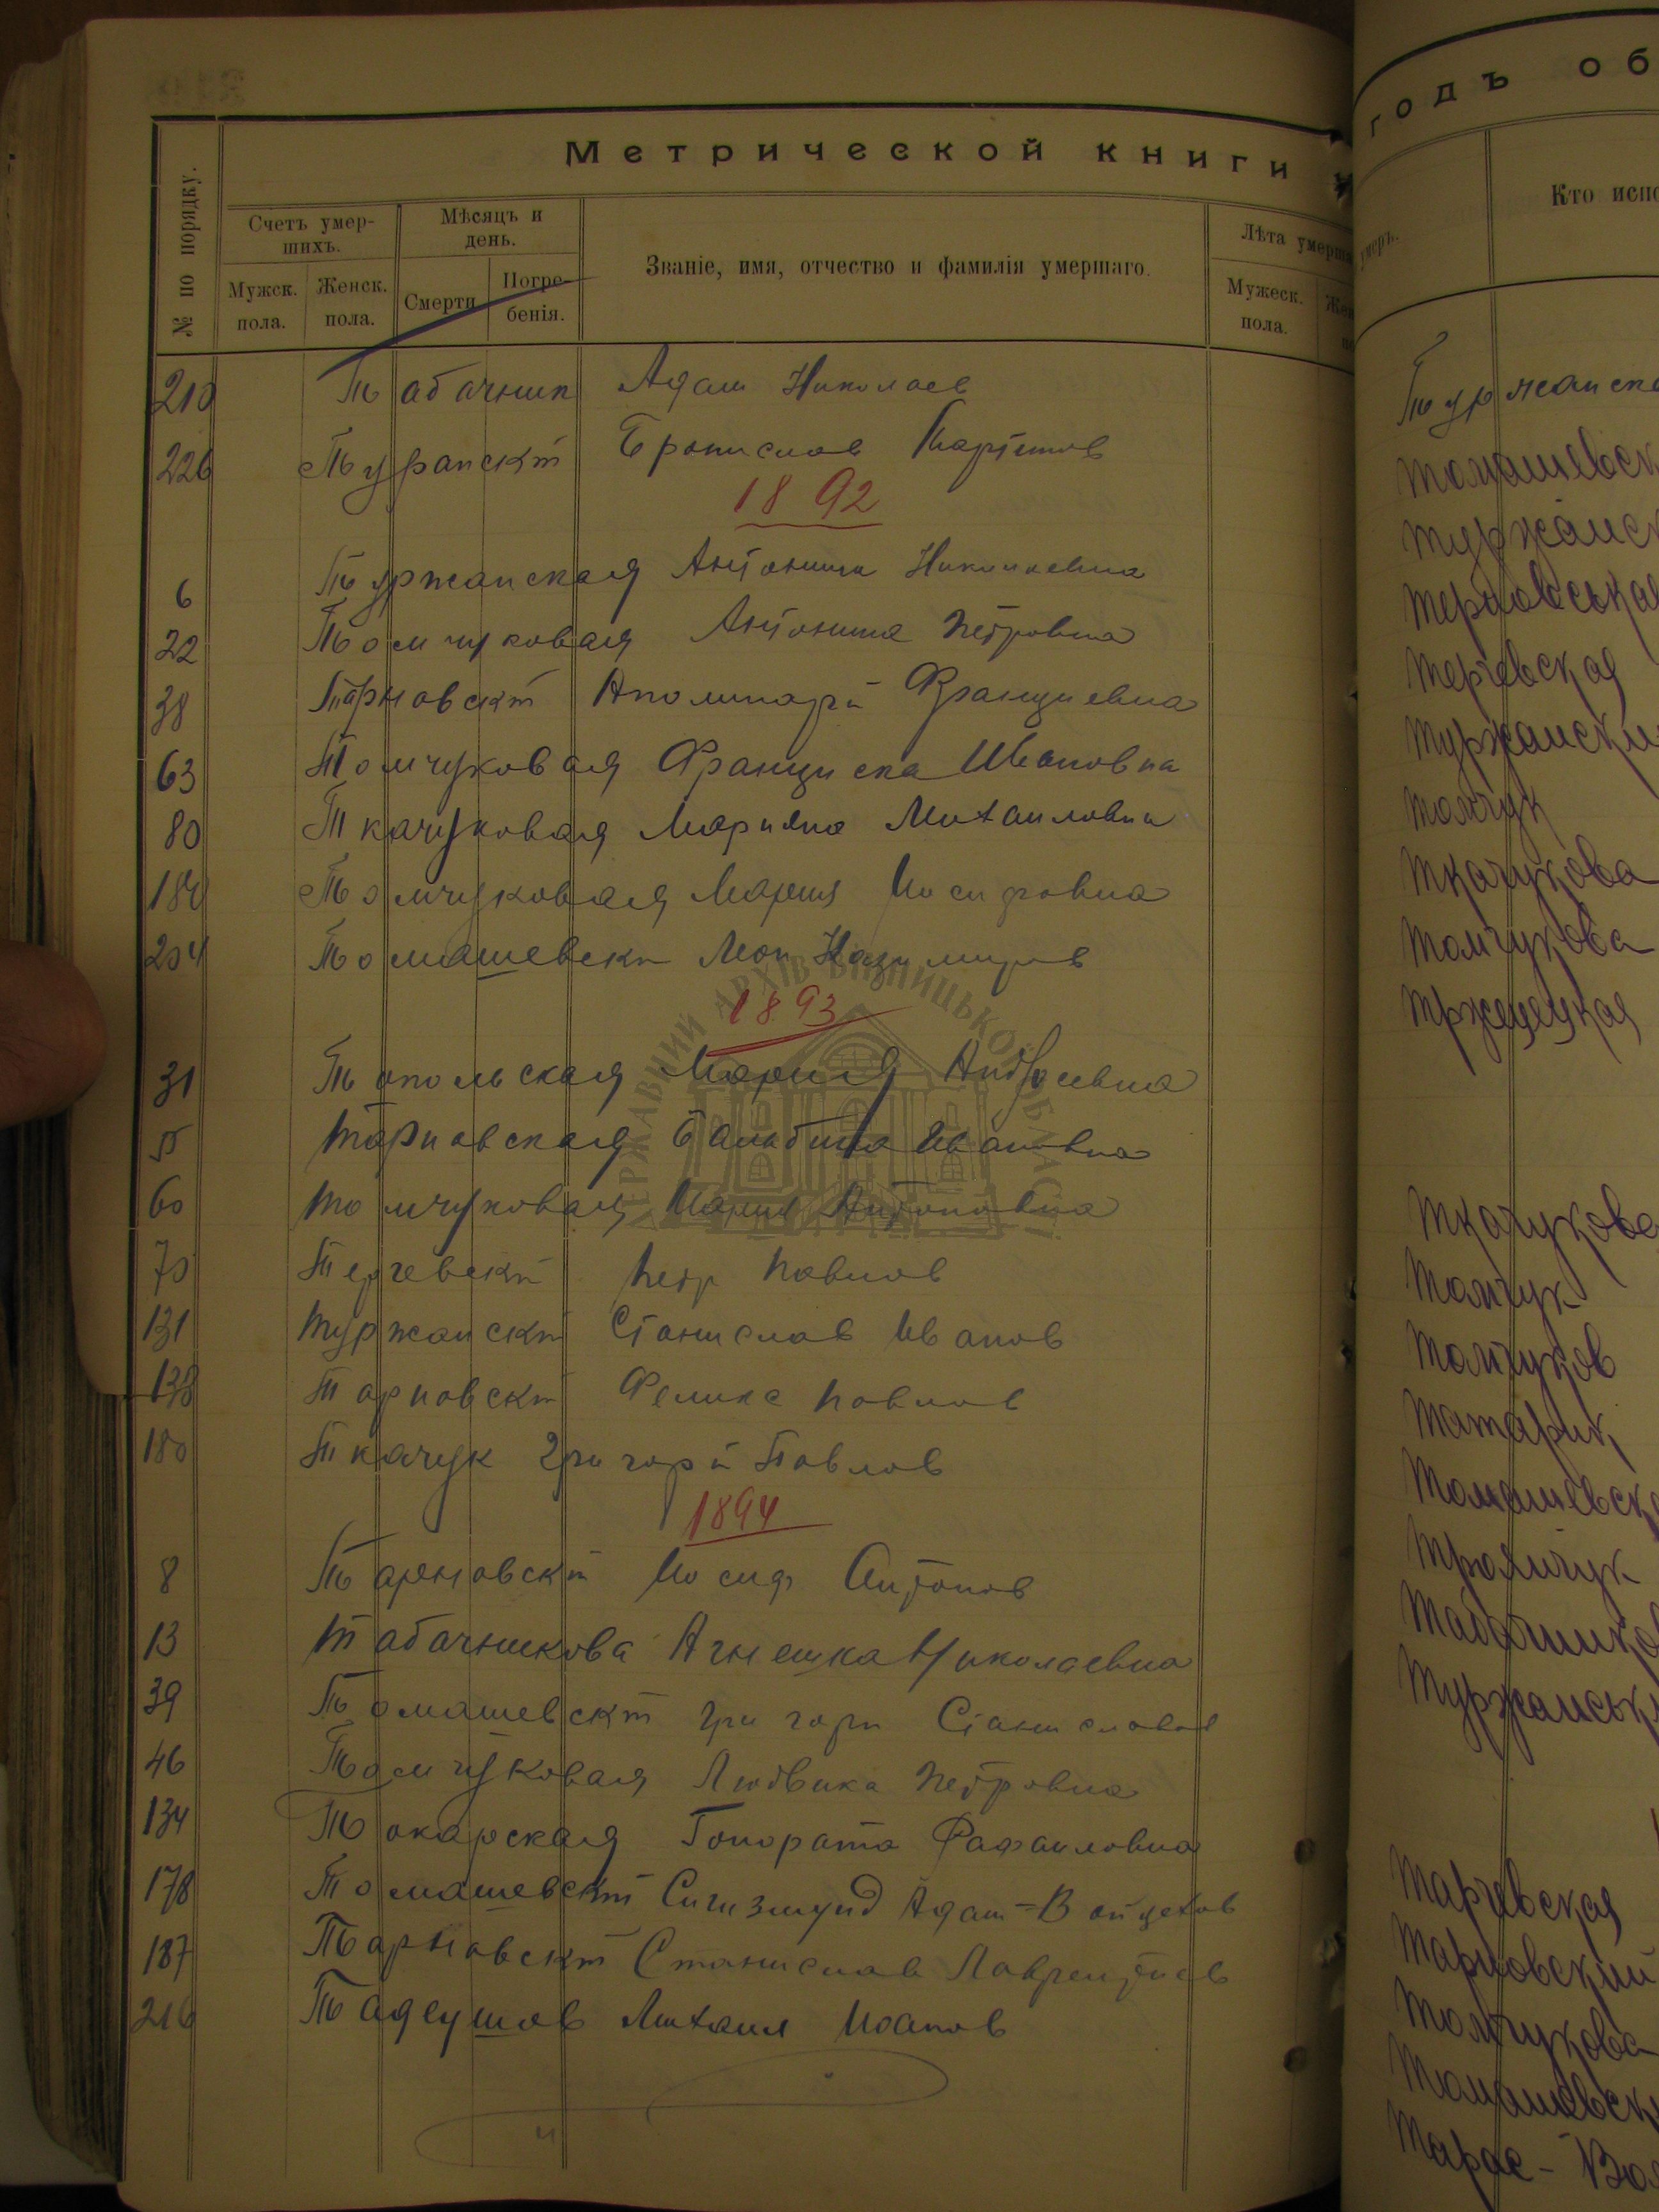 Метрической книги
№ по порядку.
Счетъ умер-
шихъ.
Мѣсяцъ и
день.
Званіе, имя, отчество и фамилія умершаго.
Лѣта умерша
Мужск.
пола.
Женск.
пола.
Смерти
Погре-
бенія.
Мужеск.
пола.
210 Табачник Адам Николаев
226 Бронислав Мартинов
1892
6 Туржанская Антонина Николаевна
22 Томчуковая Антонина Петровна
38 Тарновскій Аполинарій
63 Томчуковая Франциска Ивановна
80 Ткачуковая Марияна Михаиловна
Томчуковая Мария Иосифовна
204 Томашевскій Леон Казимиров
1893
31 Топольская Мария Андреевна
55 Тарновская Бальбина Ивановна
60 Томчуковая Мария Антоновна
Терчевскій Петр Павлов
131 Туржанскій Станислав Иванов
138 Тарновскій Феликс Павлов
180 Ткачук Григорій Павлов
1894
8 Тарновскій Иосиф Антонов
13 Табачникова Агнешка Николаевна
39 Томашевскій Григорій
46 Томчуковая Людвика Петровна
134 Токарская Гонората Рафаиловна
178 Томашевскій Сигизмунд Адам-Войцехов
187 Тарновскій Станислав Лаврентіев
216 Тадеушов Михаил Иоанов
ДЕРЖАВНИЙ АРХІВ ВІННИЦЬКОЇ ОБЛАСТІ
годъ об
умеръ.
Кто испо
Туржанск
Томашевск
Туржанск
Терновськая
Терчевская
Туржански
Томчук
Ткачукова
Томчукова
Тржецецкая
Ткачукова
Томчук
Томчуков
Татарик
Томашевск
Троянчук
Табачников
Туржанськ
Тарчевская
Тарновский
Томчукова
Томашевск
Тарас-Во